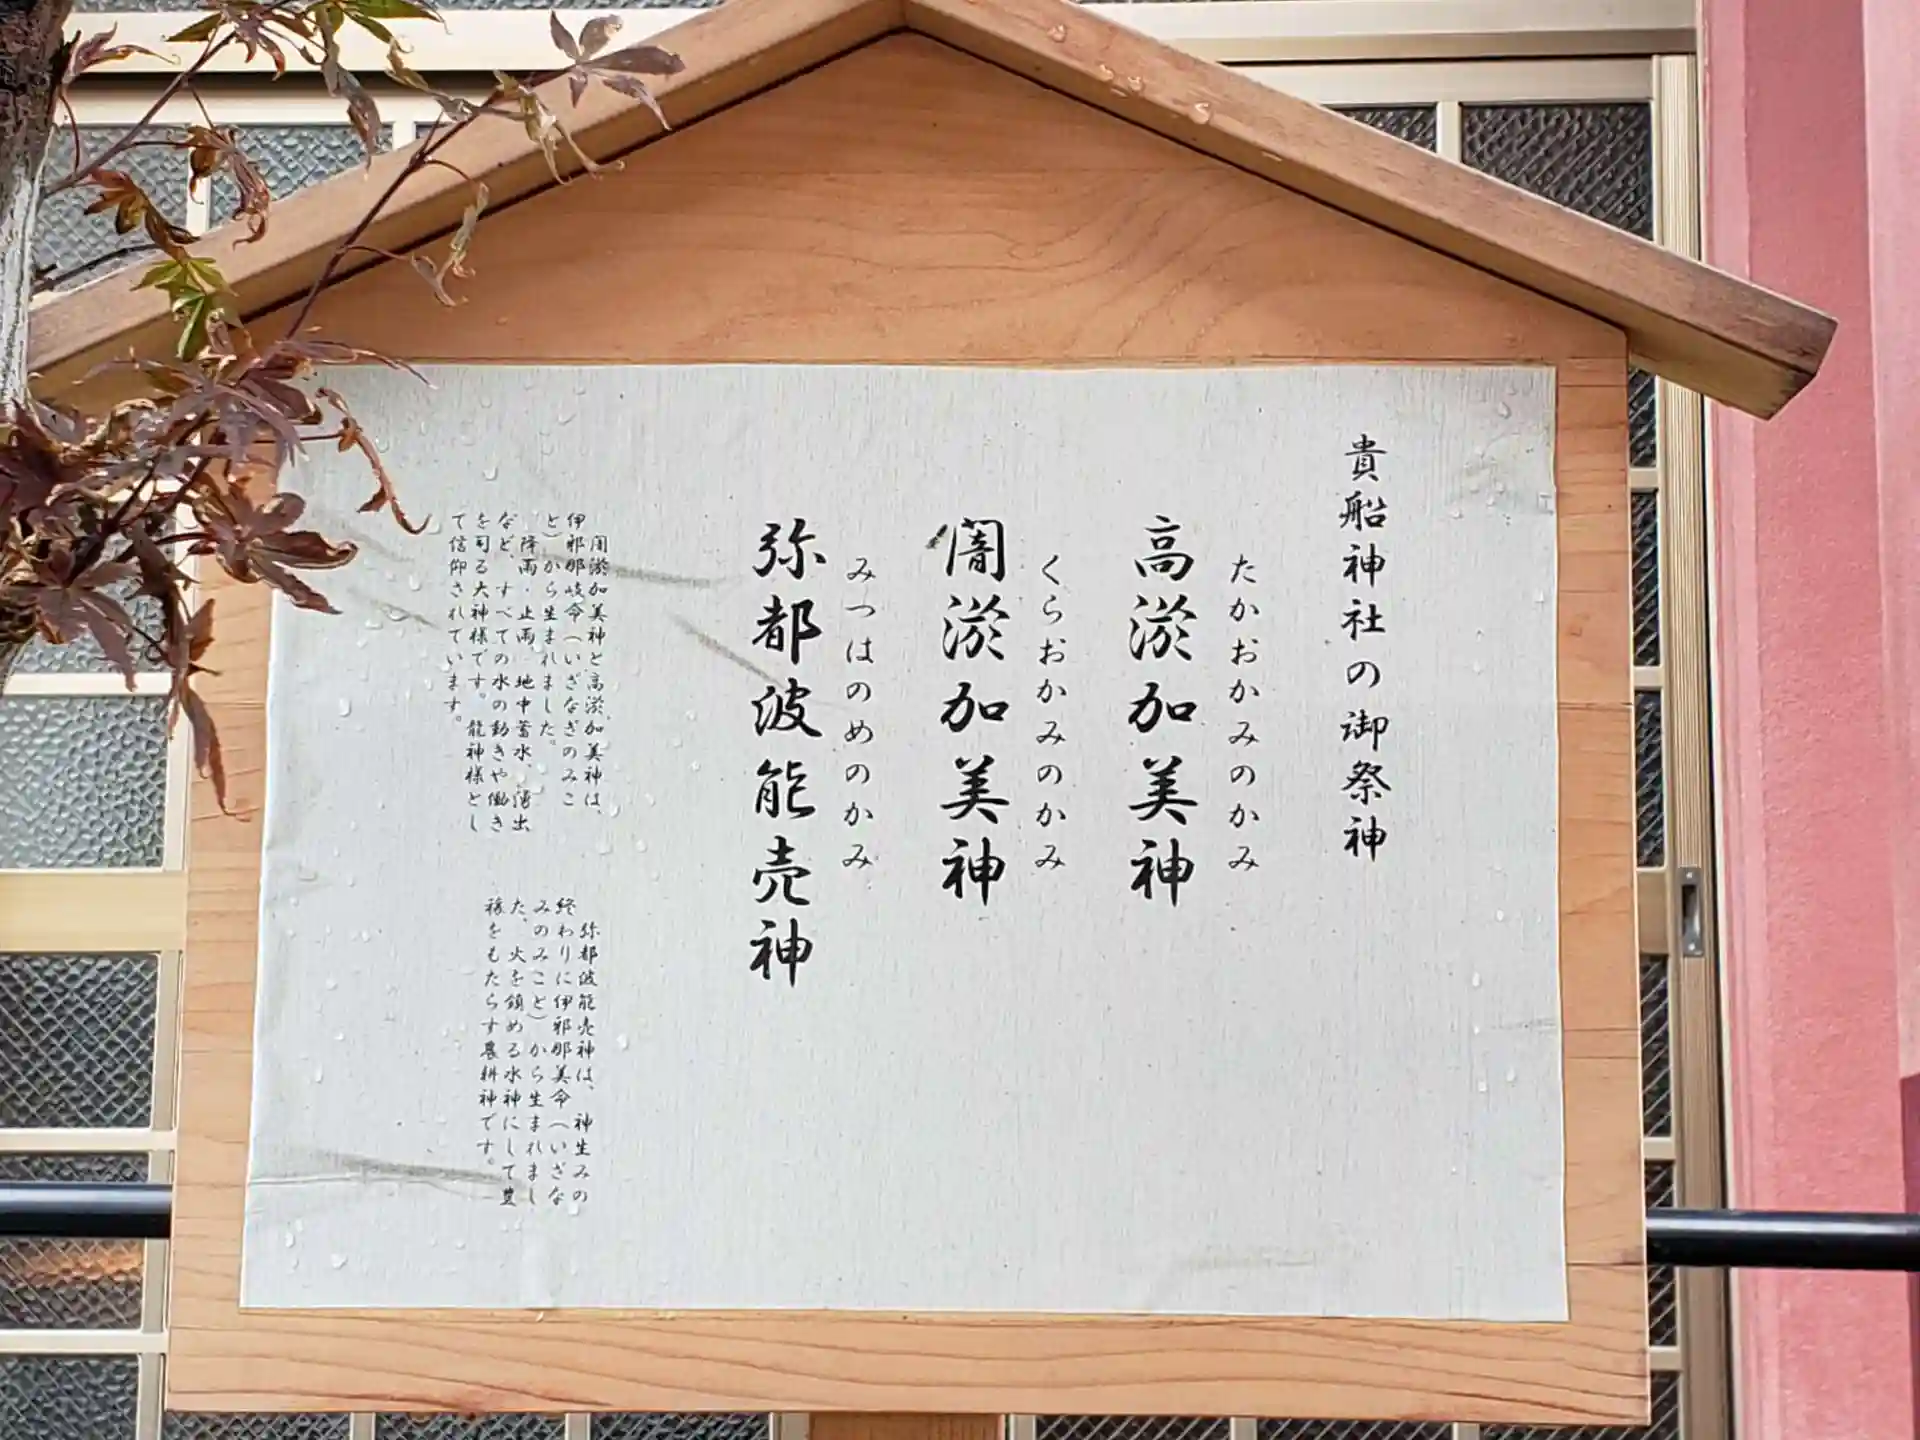 貴船神社の御祭神
たかおかみのかみ
高淤加美神
くらおかみのかみ
闇淤加美神
みつはのめのかみ
弥都波能売神
闇淤加美神と高淤加美神は、
伊邪那岐命（いざなぎのみこ
と）から生まれました。
降雨・止雨、地中蓄水、湧出
など、すべての水の動きや働き
を司る大神様です。龍神様とし
て信仰されています。
弥都波能売神は、神生みの
終わりに伊邪那美命（いざな
みのみこと）から生まれまし
た。火を鎮める水神にして豊
穣をもたらす農耕神です。